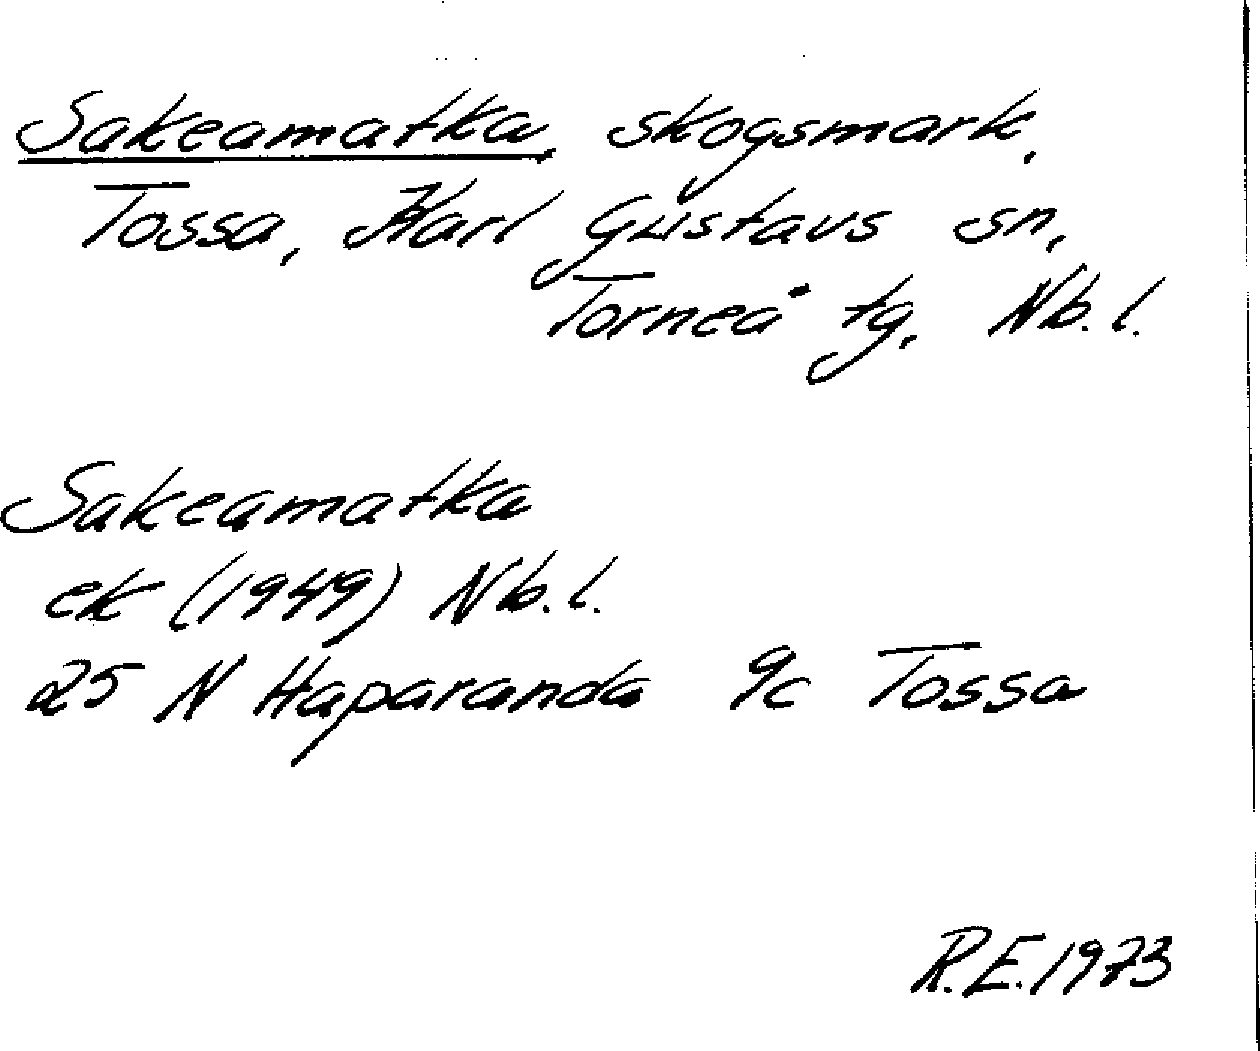 Sakeamatka, skogsmark,
Tossa, Karl Gustavs sn,
Torneå tg, Nb. l.
Sakeamatka
ek (1949) Nb. l.
25 N Haparanda 9c Tossa
R.E. 1973